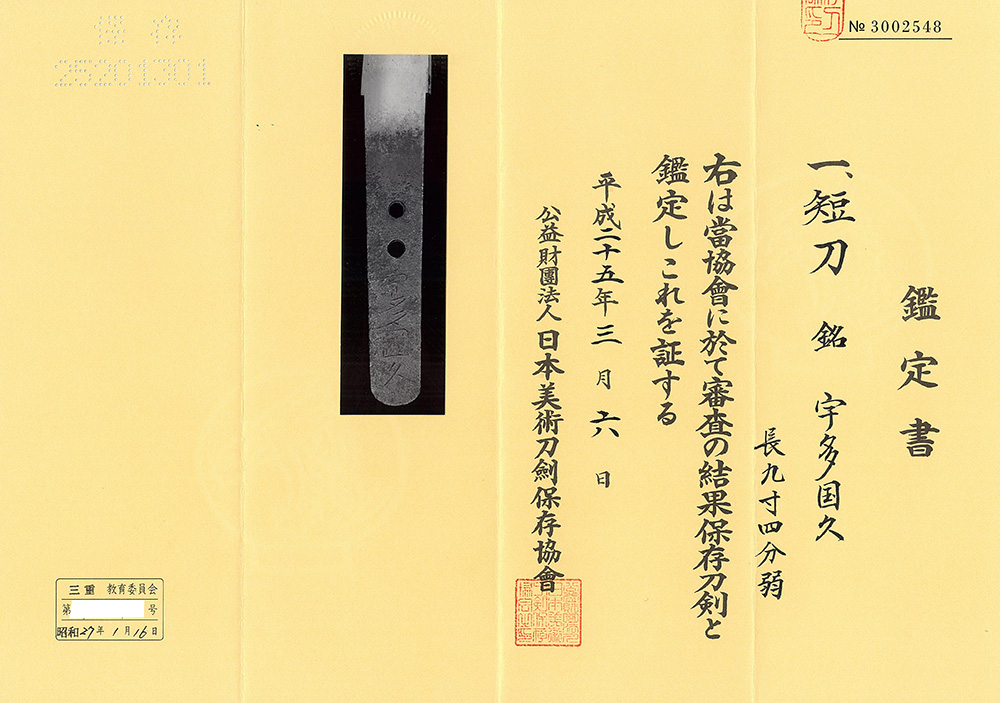 № 3002548
鑑定書
一、短刀 銘 宇多国久
長九寸四分弱
右は當協會に於て審査の結果保存刀剣と
鑑定しこれを証する
平成二十五年三月六日
公益財團法人 日本美術刀劍保存協會
宇多国久
保存
25201301
三重 教育委員会
第 号
昭和27年1月16日